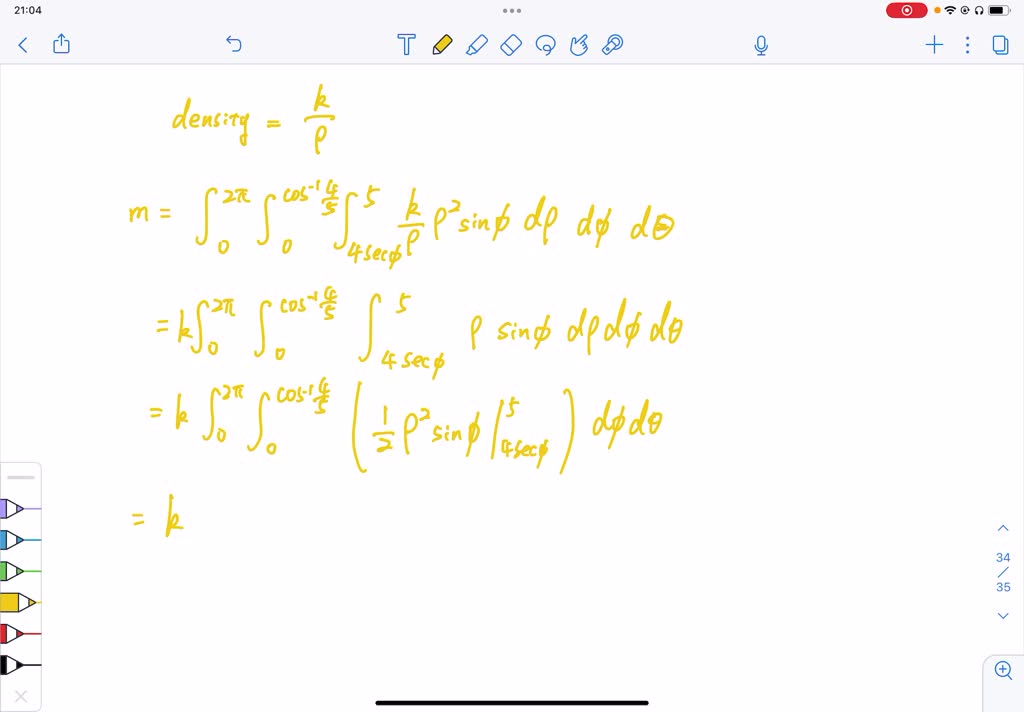 21:04
density = k/ρ
m = ∫₀^2π ∫₀^cos⁻¹ 4/5 ∫_4secφ^5 k/ρ ρ² sinφ dρ dφ dθ
= k ∫₀^2π ∫₀^cos⁻¹ 4/5 ∫_4secφ^5 ρ sinφ dρ dφ dθ
= k ∫₀^2π ∫₀^cos⁻¹ 4/5 ( 1/2 ρ² sinφ |_4secφ^5 ) dφ dθ
= k
34
/
35